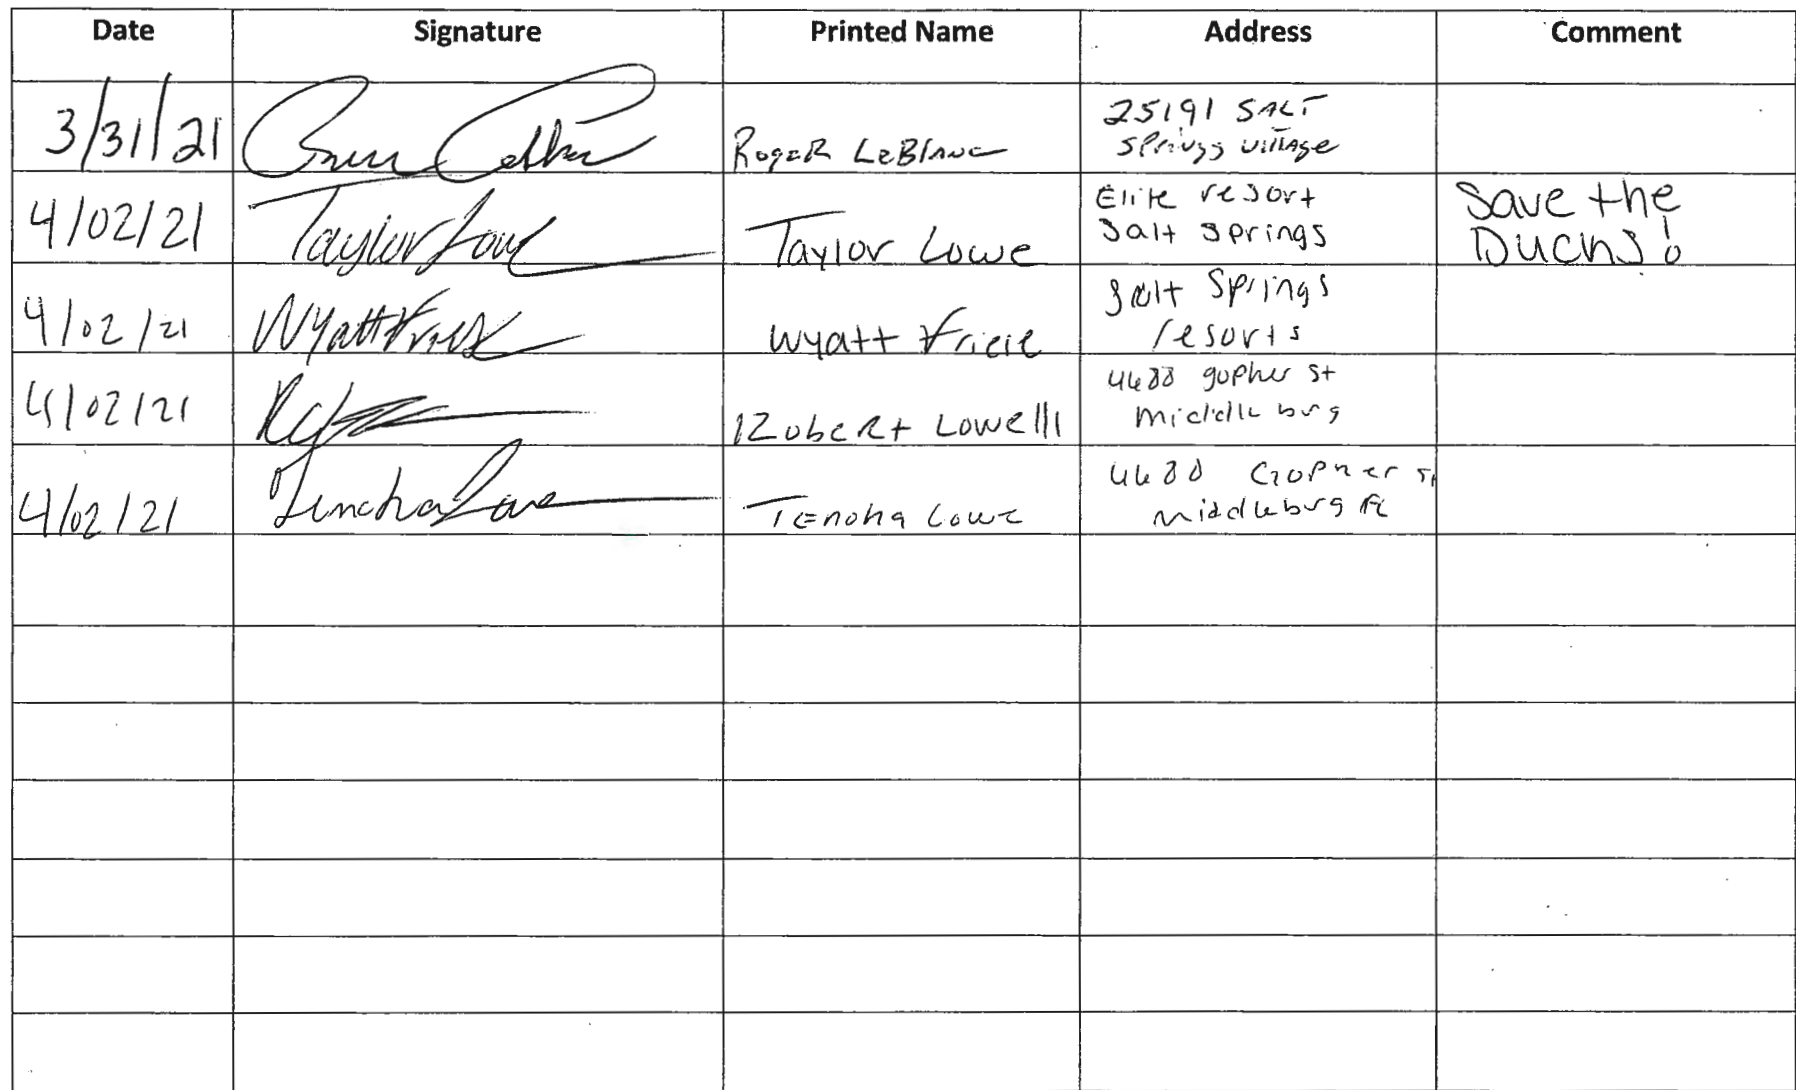 Date Signature Printed Name Address Comment
3/31/21 RogeR LeBlanc 25191 SALT
Springs village
4/02/21 Taylor Lowe Taylor Lowe Elite resort
Salt Springs
Save the
Ducks!
4/02/21 Wyatt Wyatt Salt Springs
resorts
4/02/21 RobeRt gopher st
Middleburg
4/02/21 Lowe Gopher St
Middleburg FL